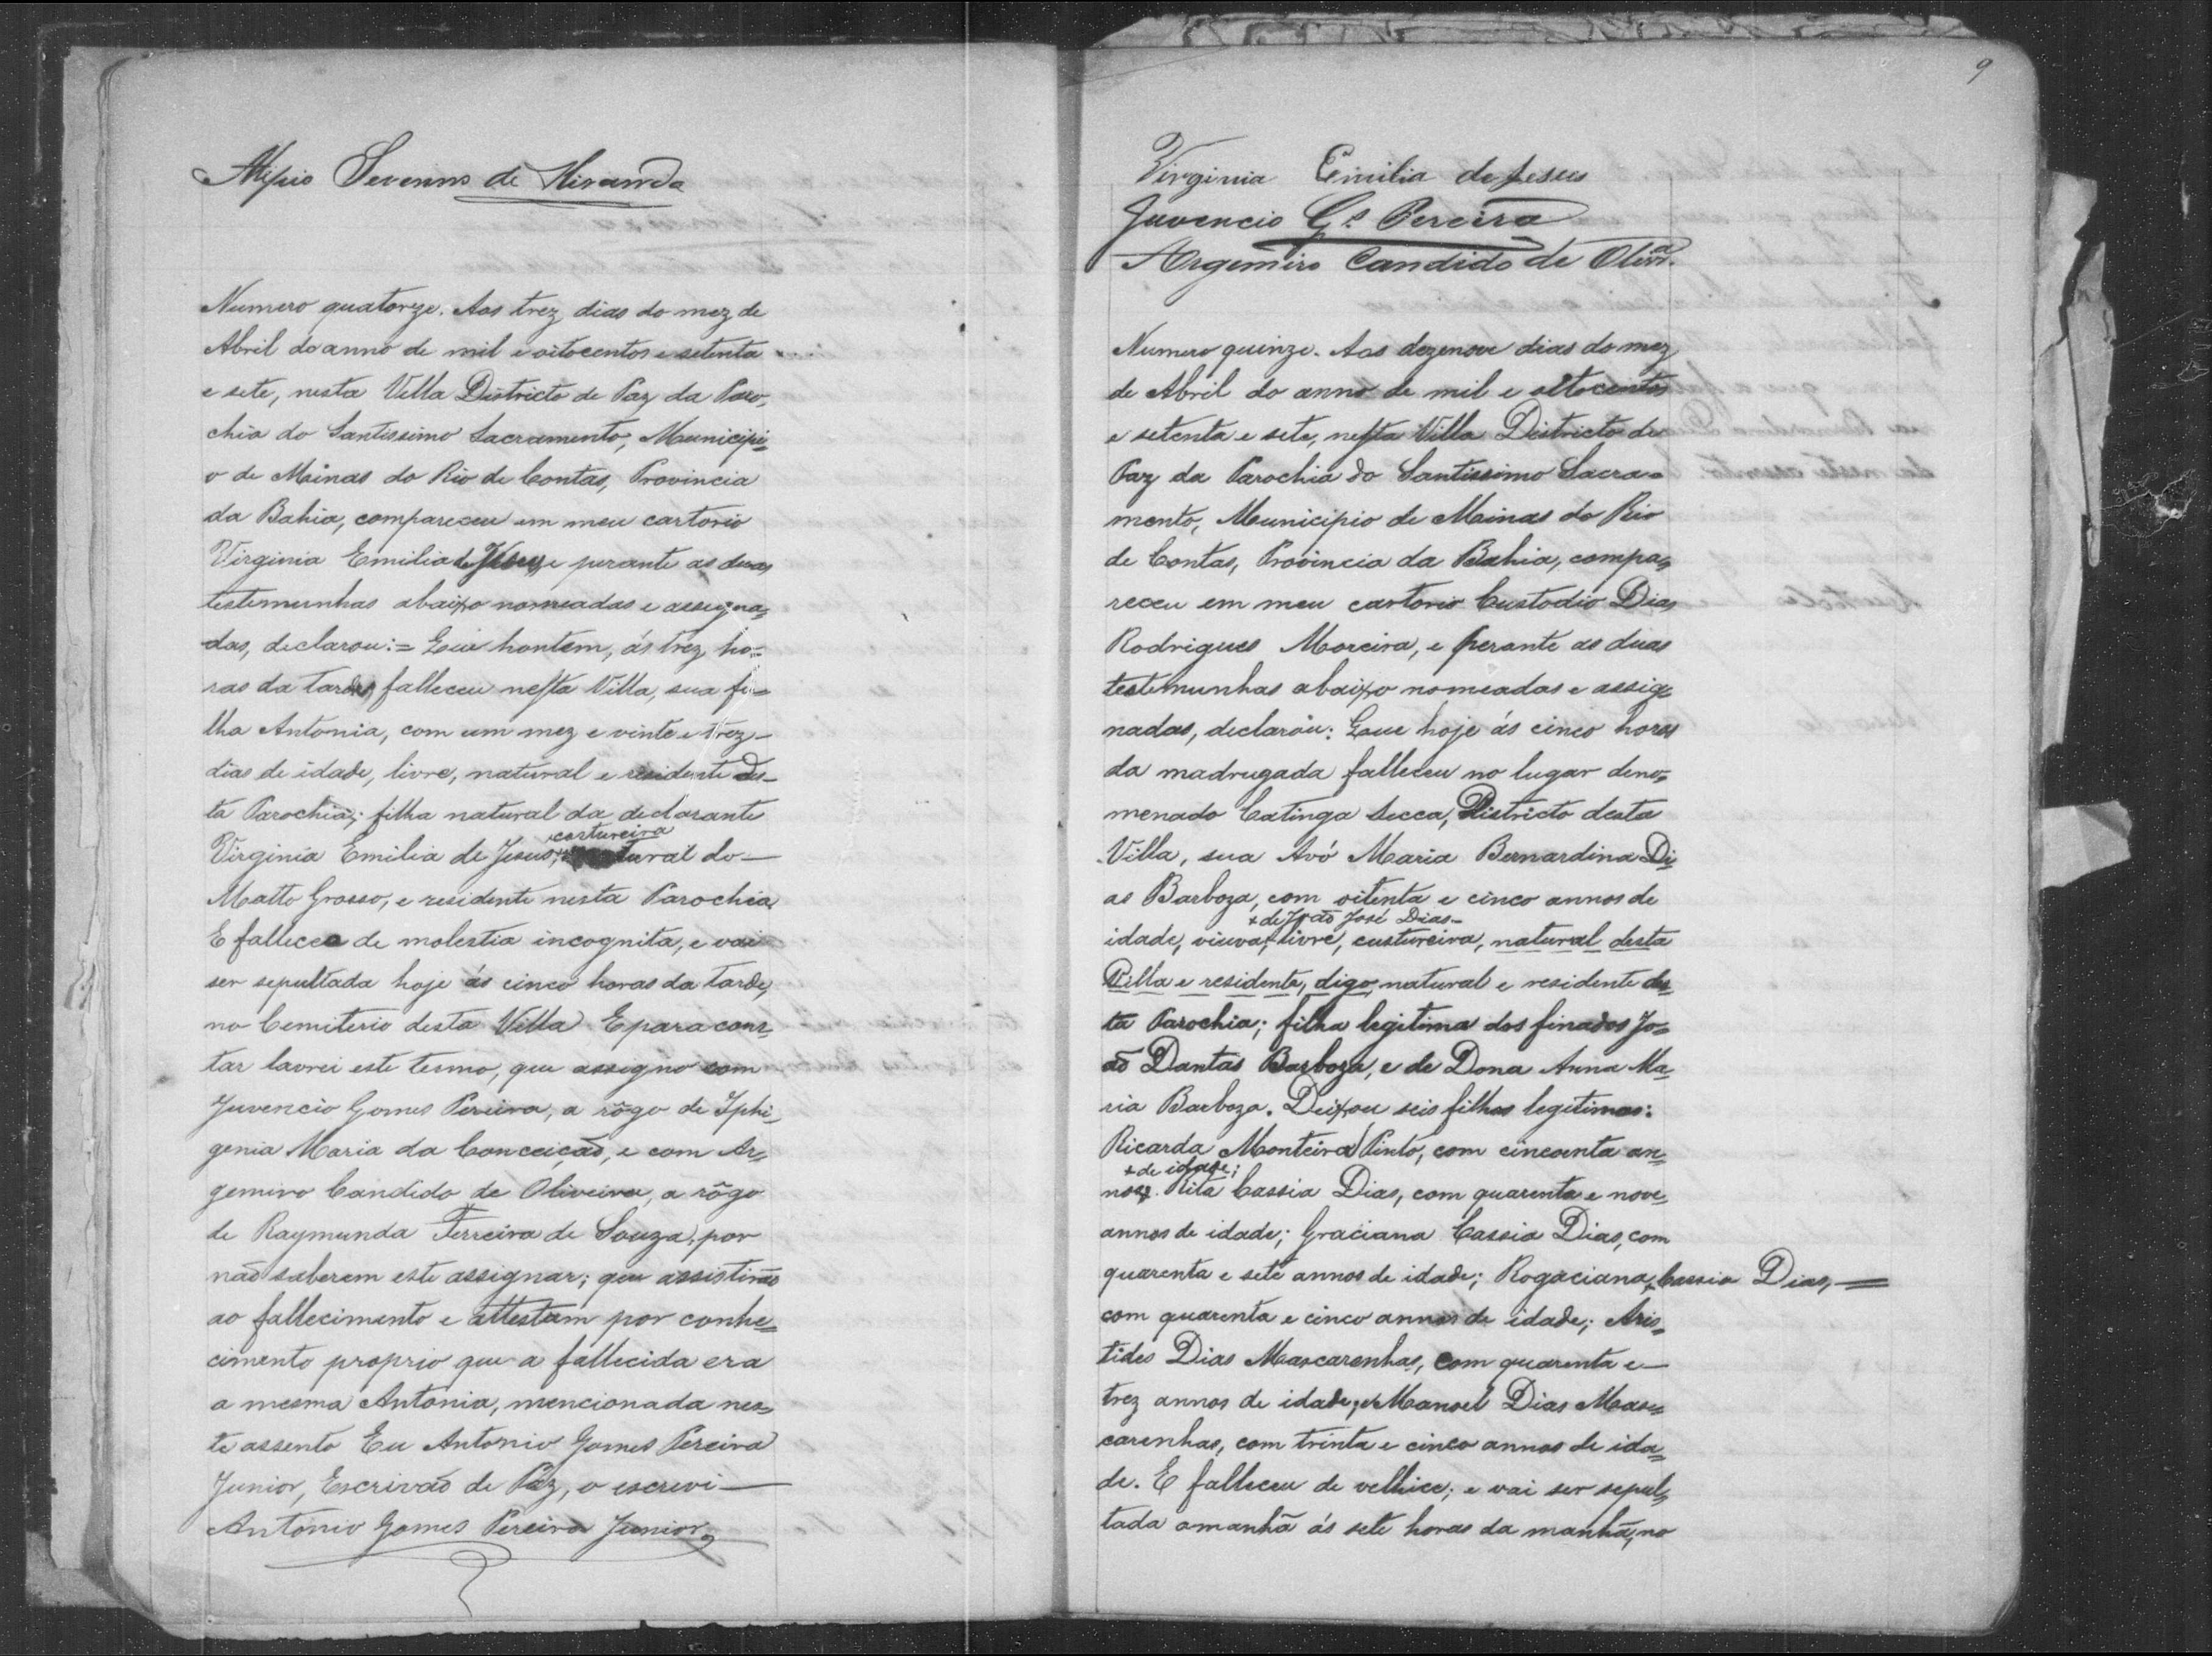 Severino de Miranda
Numero quatorze. Aos trez dias do mez de
Abril do anno de mil e oitocentos e setenta
e sete, nesta Villa Districto de Paz da Paro,
chia do Santissimo Sacramento, Municipi=
o de Minas do Rio de Contas, Provincia
da Bahia, compareceu em meu cartorio
Virginia Emilia de Jesus, e perante as duas
testemunhas abaixo nomeadas e assigna=
das, declarou:= Que hontem, ás trez ho=
ras da tarde, falleceu nesta Villa, sua fi=
lha Antonia, com um mez e vinte e trez—
dias de idade, livre, natural e residente des—
ta Parochia; filha natural da declarante
costureira
Virginia Emilia de Jesus, natural do—
Matto Grosso, e residente nesta Parochia
E falleceo de molestia incognita, e vai
ser sepultada hoje ás cinco horas da tarde,
no Cemiterio desta Villa E para cons=
tar lavrei este termo, que assigno com
Juvencio Gomes Pereira, a rôgo de Iphi=
genia Maria da Conceição, e com Ar=
gemiro Candido de Oliveira, a rôgo
de Raymunda Ferreira de Souza, por
não saberem este assignar; que assistirão
ao fallecimento e attestam por conhe=
cimento proprio que a fallecida era
a mesma Antonia, mencionada nes=
te assento Eu Antonio Gomes Pereira
Junior, Escrivão de Paz, o escrevi—
Antonio Gomes Pereira Junior
9
Virginia Emilia de Jesus
Juvencio Gs. Pereira
Argemiro Candido de Olivra.
Numero quinze. Aos dezenove dias do mez
de Abril do anno de mil e oitocentos
e setenta e sete, nesta Villa Districto de
Paz da Parochia do Santissimo Sacra=
mento, Municipio de Minas do Rio
de Contas, Provincia da Bahia, compa=
receu em meu cartorio Custodio Dias
Rodrigues Moreira, e perante as duas
testemunhas abaixo nomeadas e assig=
nadas, declarou: Que hoje ás cinco horas
da madrugada falleceu no lugar deno=
menado Catinga Secca, Districto desta
Villa, sua Avó Maria Bernardina Di=
as Barboza, com oitenta e cinco annos de
+ de João José Dias—
idade, viuva,+ livre, custureira, natural desta
Villa e residente, digo, natural e residente des=
ta Parochia; filha legitima dos finados Jo=
ão Dantas Barboza, e de Dona Anna Ma=
ria Barboza. Deixou seis filhos legitimos:
Ricarda Monteiro Pinto, com cincoenta an=
+ de idade;
nos+. Rita Cassia Dias, com quarenta e nove
annos de idade; Graciana Cassia Dias, com
quarenta e sete annos de idade; Rogaciana+ Cassia Dias,=
com quarenta e cinco annos de idade; Aris=
tides Dias Mascarenhas, com quarenta e—
trez annos de idade; e Manoel Dias Mas=
carenhas, com trinta e cinco annos de ida=
de. E falleceu de velhice; e vai ser sepul=
tada amanhã ás sete horas da manhã, no